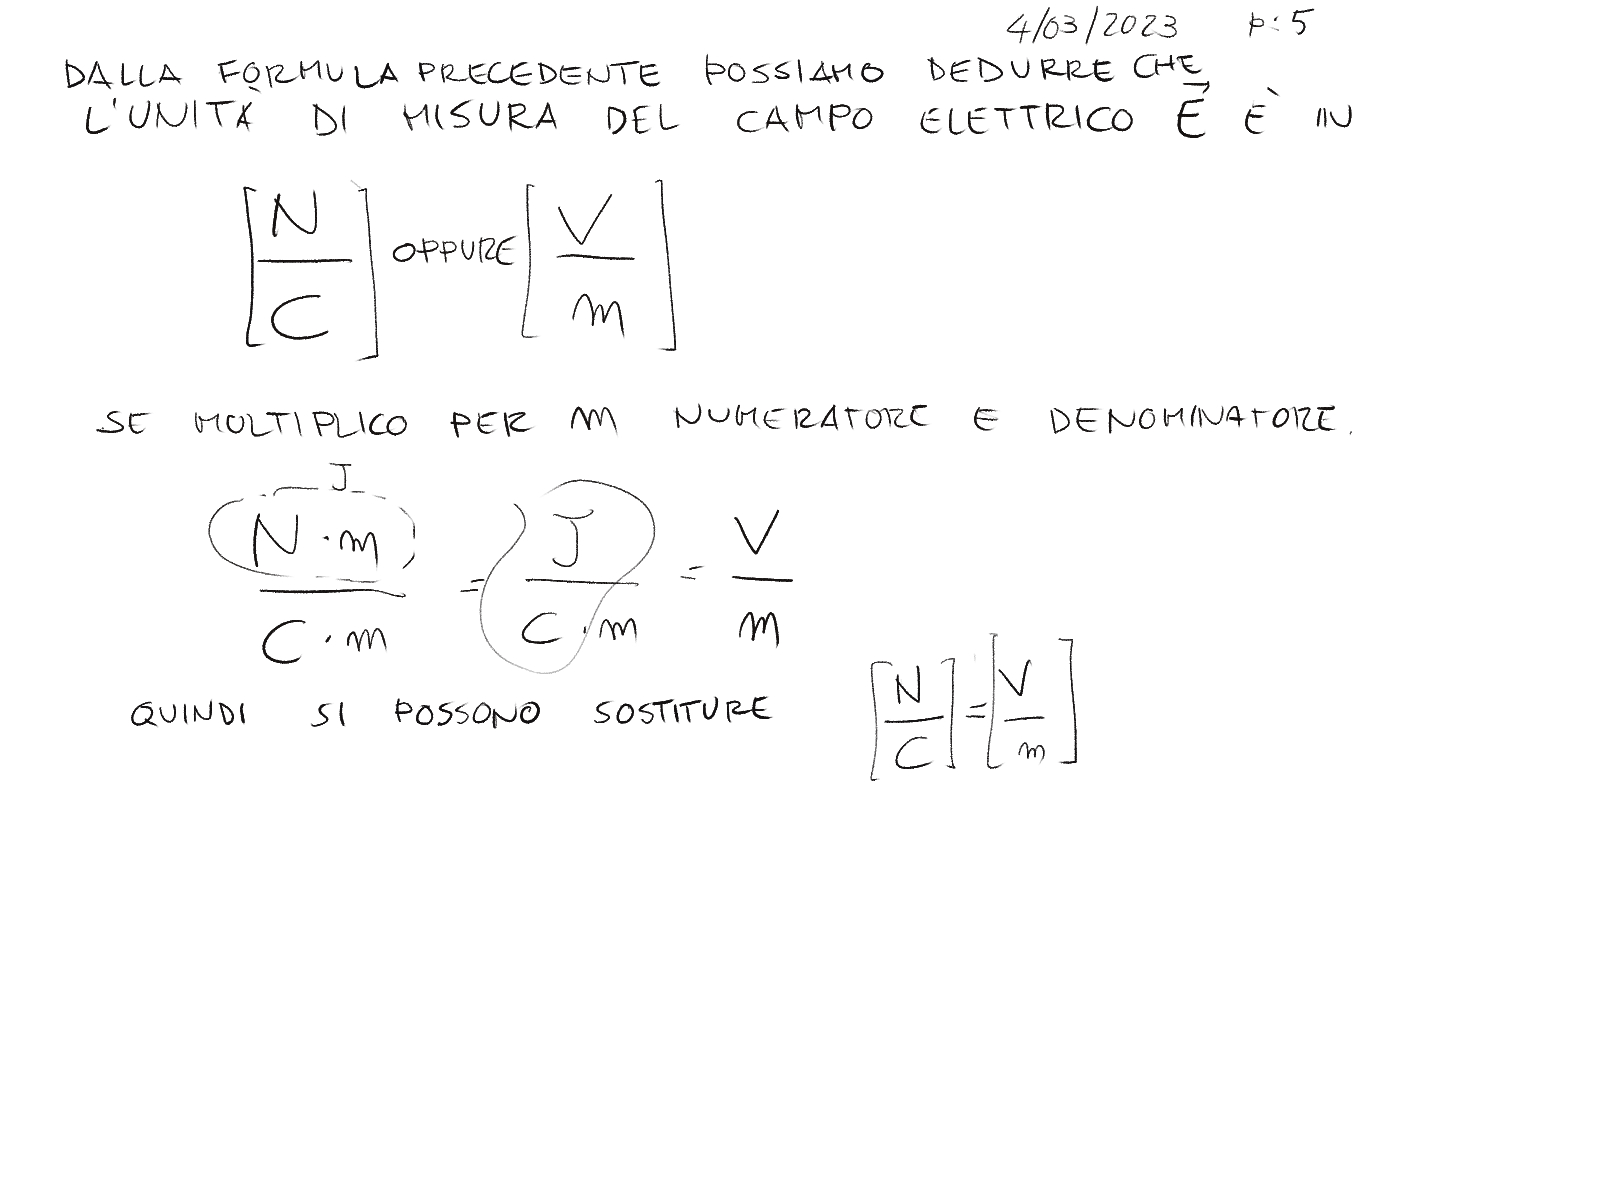 4/03/2023 p:5
DALLA FORMULA PRECEDENTE POSSIAMO DEDURRE CHE
L'UNITÀ DI MISURA DEL CAMPO ELETTRICO E⃗ È IN
[N/C] OPPURE [V/m]
SE MOLTIPLICO PER m NUMERATORE E DENOMINATORE.
J
N·m/C·m = J/C·m = V/m
QUINDI SI POSSONO SOSTITURE [N/C] = [V/m]